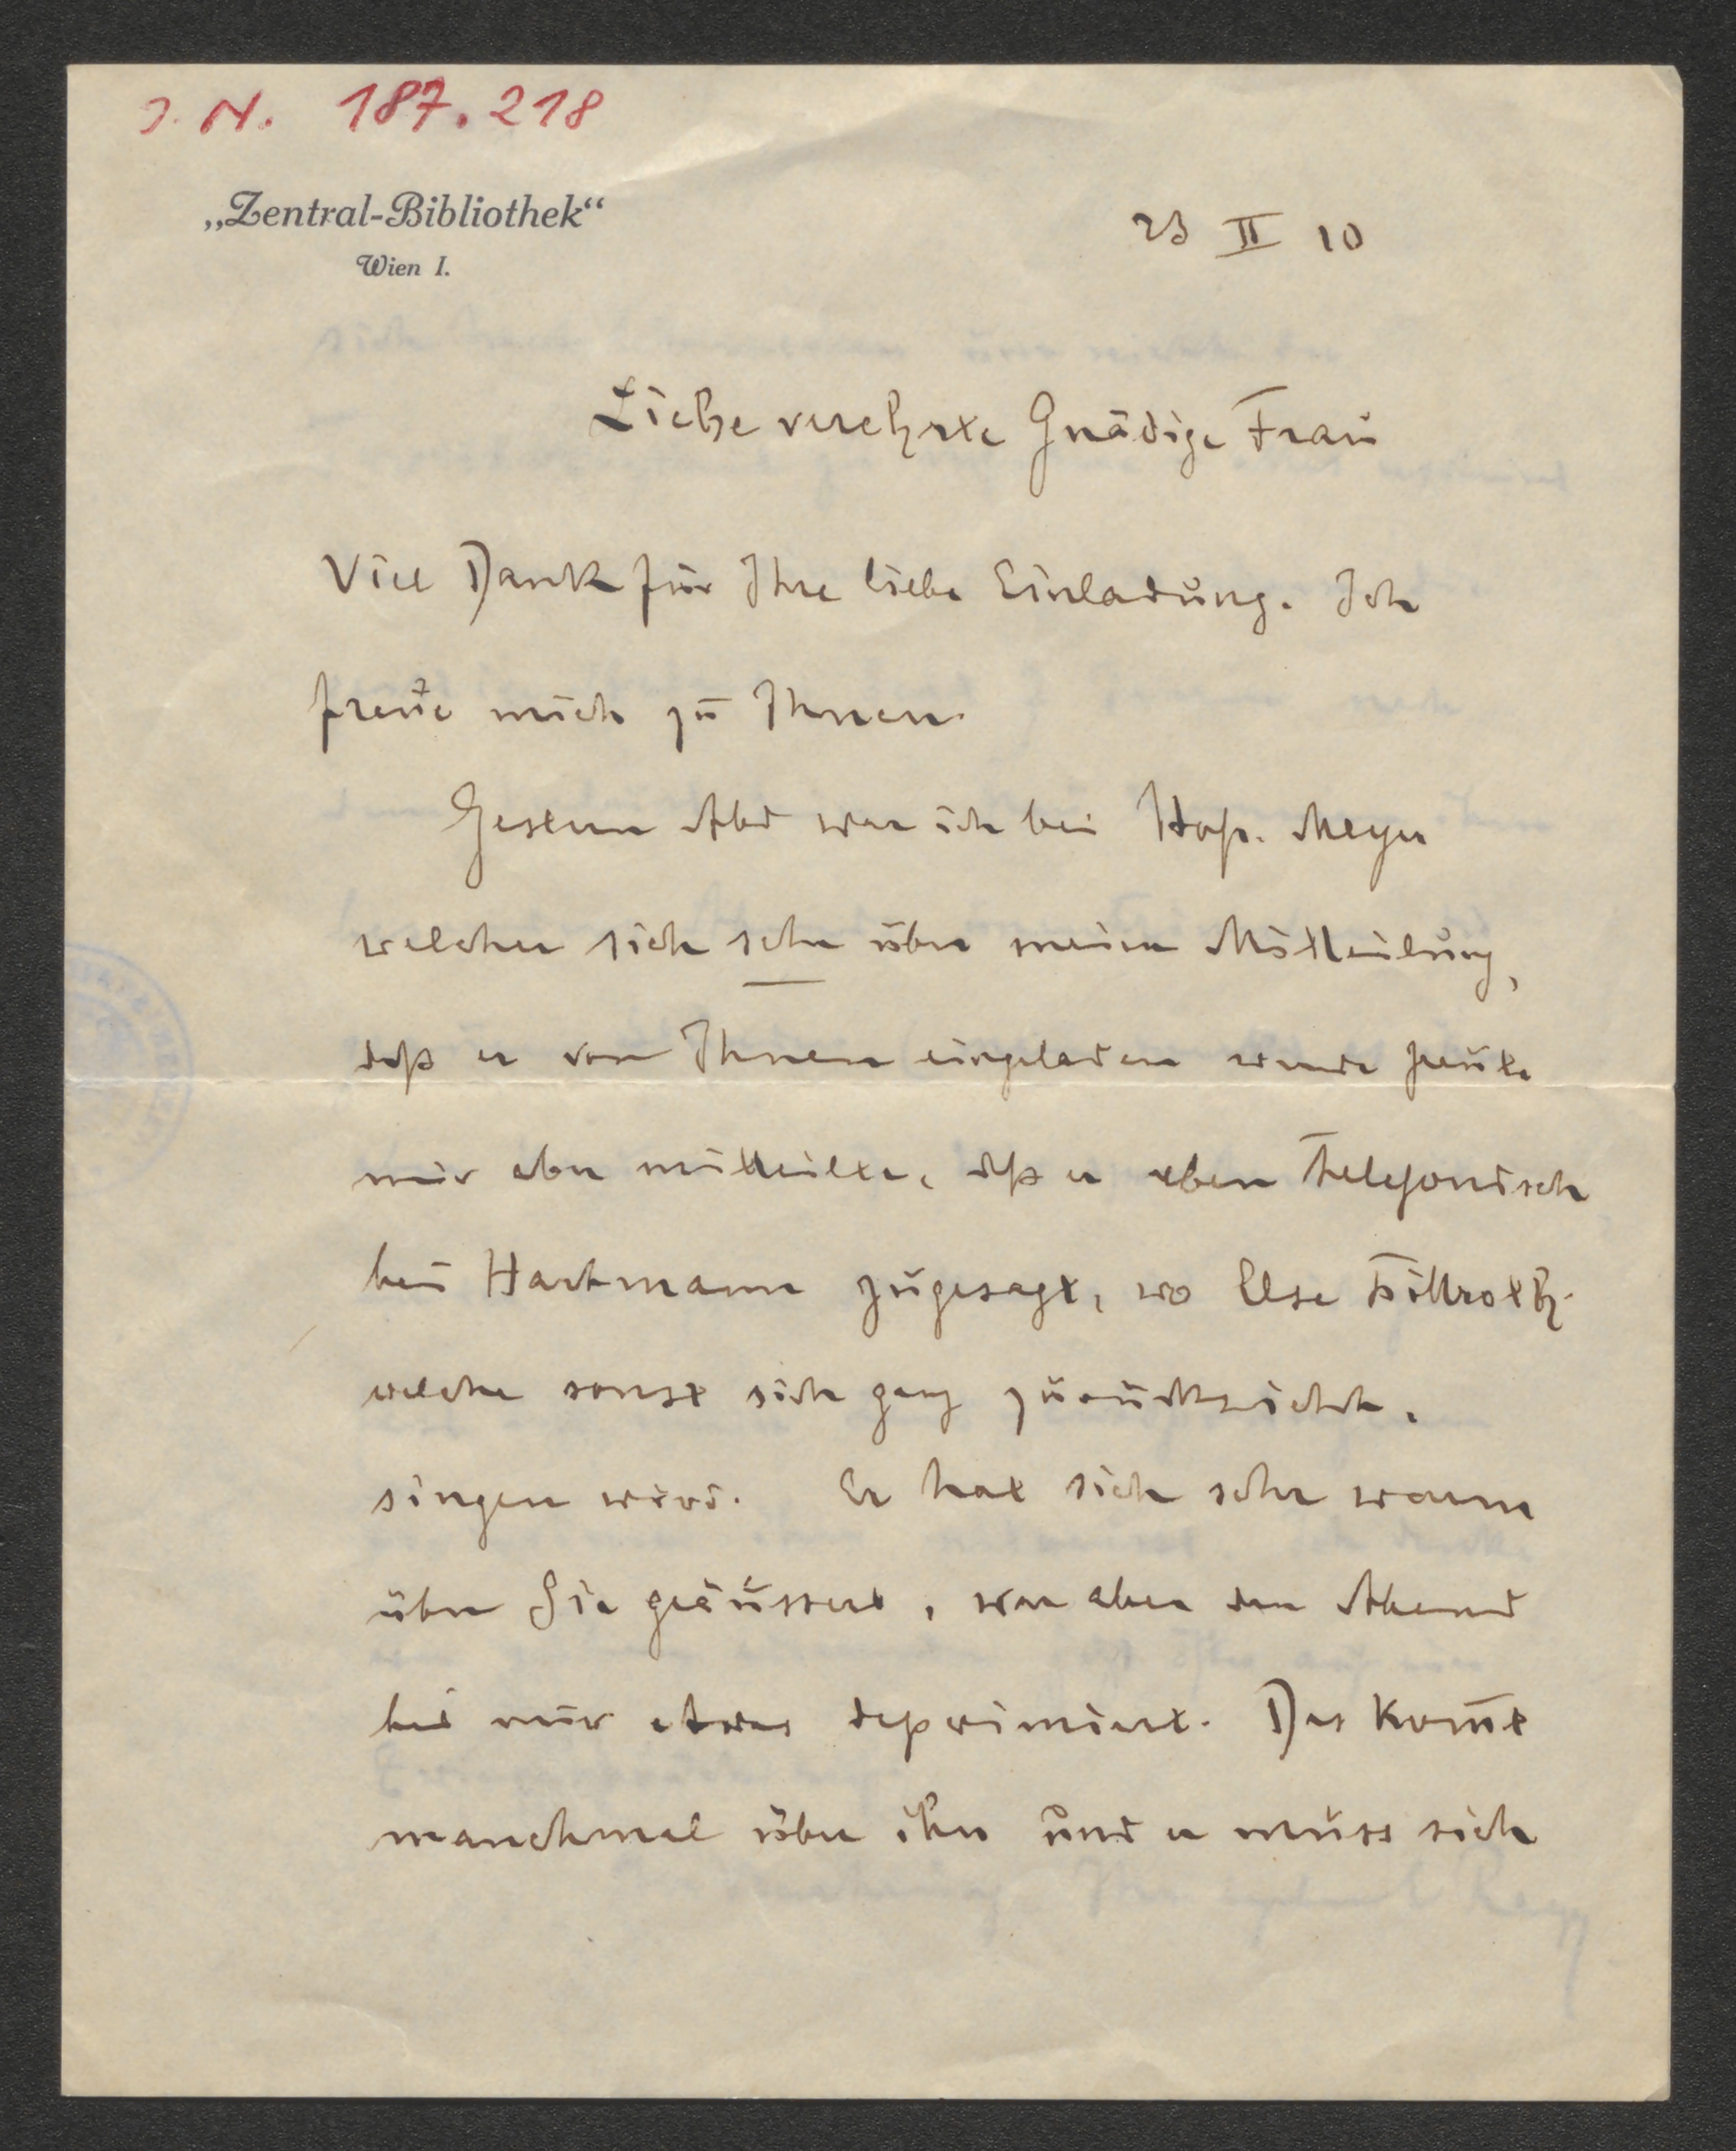 J. N. 187.218
„Zentral-Bibliothek“
Wien I.
23 II 10
Liebe verehrte Gnädige Frau
Viel Dank für Ihre liebe Einladung. Ich
freue mich zu Ihnen.
Gestern Abd war ich bei Hofr. Meyer
welcher sich sehr über meine Mitteilung,
daß er von Ihnen eingeladen wurde freute
mir aber mitteilte, daß er eben telefonisch
bei Hartmann zugesagt, wo Else Billroth
welche sonst sich ganz zurückzieht,
singen wird. Er hat sich sehr warm
über Sie geäussert, war aber den Abend
bei mir etwas deprimiert. Das kom̅t
manchmal über ihn und er muss sich